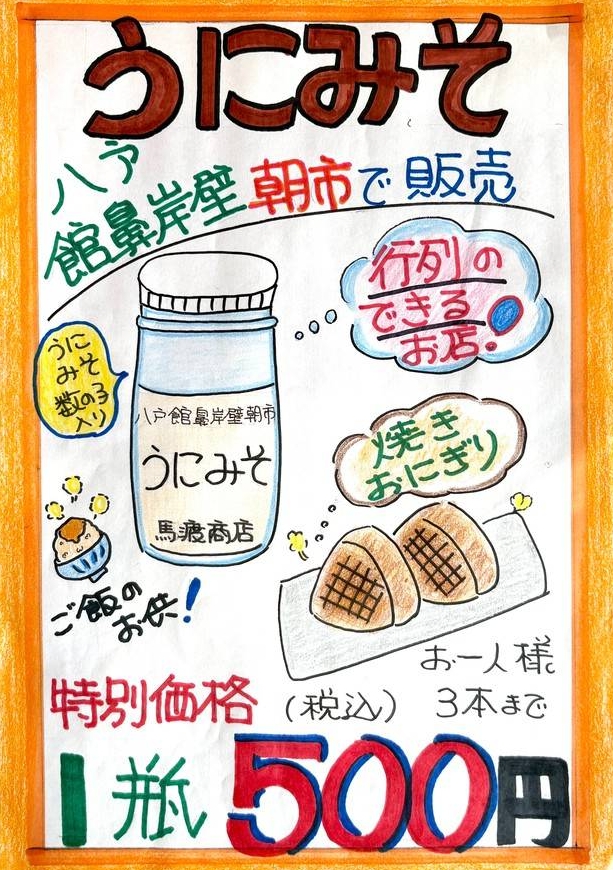 うにみそ
八戸
館鼻岸壁朝市で販売
行列の
できる
お店!
うに
みそ
数の子
入り
八戸館鼻岸壁朝市
うにみそ
馬渡商店
焼き
おにぎり
ご飯の
お供!
お一人様
3本まで
特別価格(税込)
1瓶500円